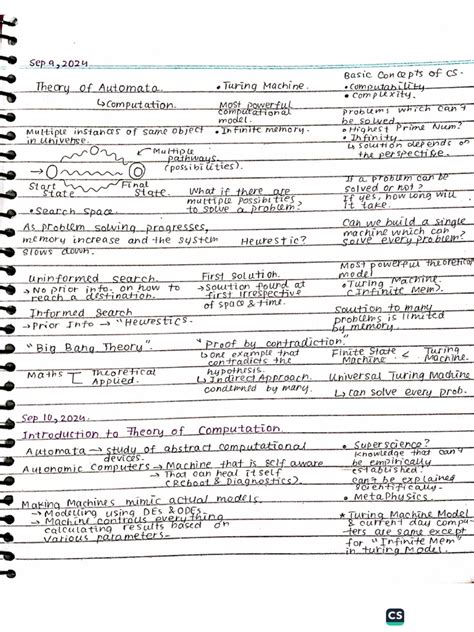 Sep 9, 2024
Theory of Automata.
↳ Computation.
Multiple instances of same object
in Universe.
Multiple
pathways
(possibilities).
Start
State
Final
State.
• Search Space.
As problem solving progresses,
memory increase and the system
slows down.
Uninformed Search
→ No prior info. on how to
reach a destination.
Informed Search
→ Prior Info → "Heurestics.
"Big Bang Theory".
Maths
Theoretical
Applied.
• Turing Machine.
Most powerful
computational
model.
• Infinite memory.
What if there are
multiple possibities
to solve a problem?
Heurestic?
First Solution.
→ Solution found at
first irrespective
of space & time.
"Proof by contradiction".
↳ one example that
contradicts the
hypothesis.
↳ Indirect Approach
condemned by many.
Basic Concepts of CS-
• Computability
• Complexity.
Problems which can't
be solved.
• Highest Prime Num?
• Infinity.
↳ solution depends on
the perspective.
If a problem can be
solved or not?
If yes, how long will
it take.
Can we build a single
machine which can
solve every problem?
Most powerful theoretical
model
• Turing Machine.
(Infinite Mem).
Solution to many
problems is limited
by memory.
Finite State < Turing
Machine Machine.
Universal Turing Machine
↳ can solve every prob.
Sep 10, 2024.
Introduction to Theory of Computation.
Automata → study of abstract computational
devices.
Autonomic Computers → Machine that is self aware
→ That can heal itself
(Reboot & Diagnostics).
Making Machines mimic actual models.
→ Modelling using DEs & ODEs.
→ Machine controls everything
calculating results based on
various parameters-
• Superscience?
Knowledge that can't
be empirically
established.
can't be explained
scientifically.
• MetaPhysics.
* Turing Machine Model
& current day compu-
ters are same except
for "Infinite Mem"
in turing Model.
CS